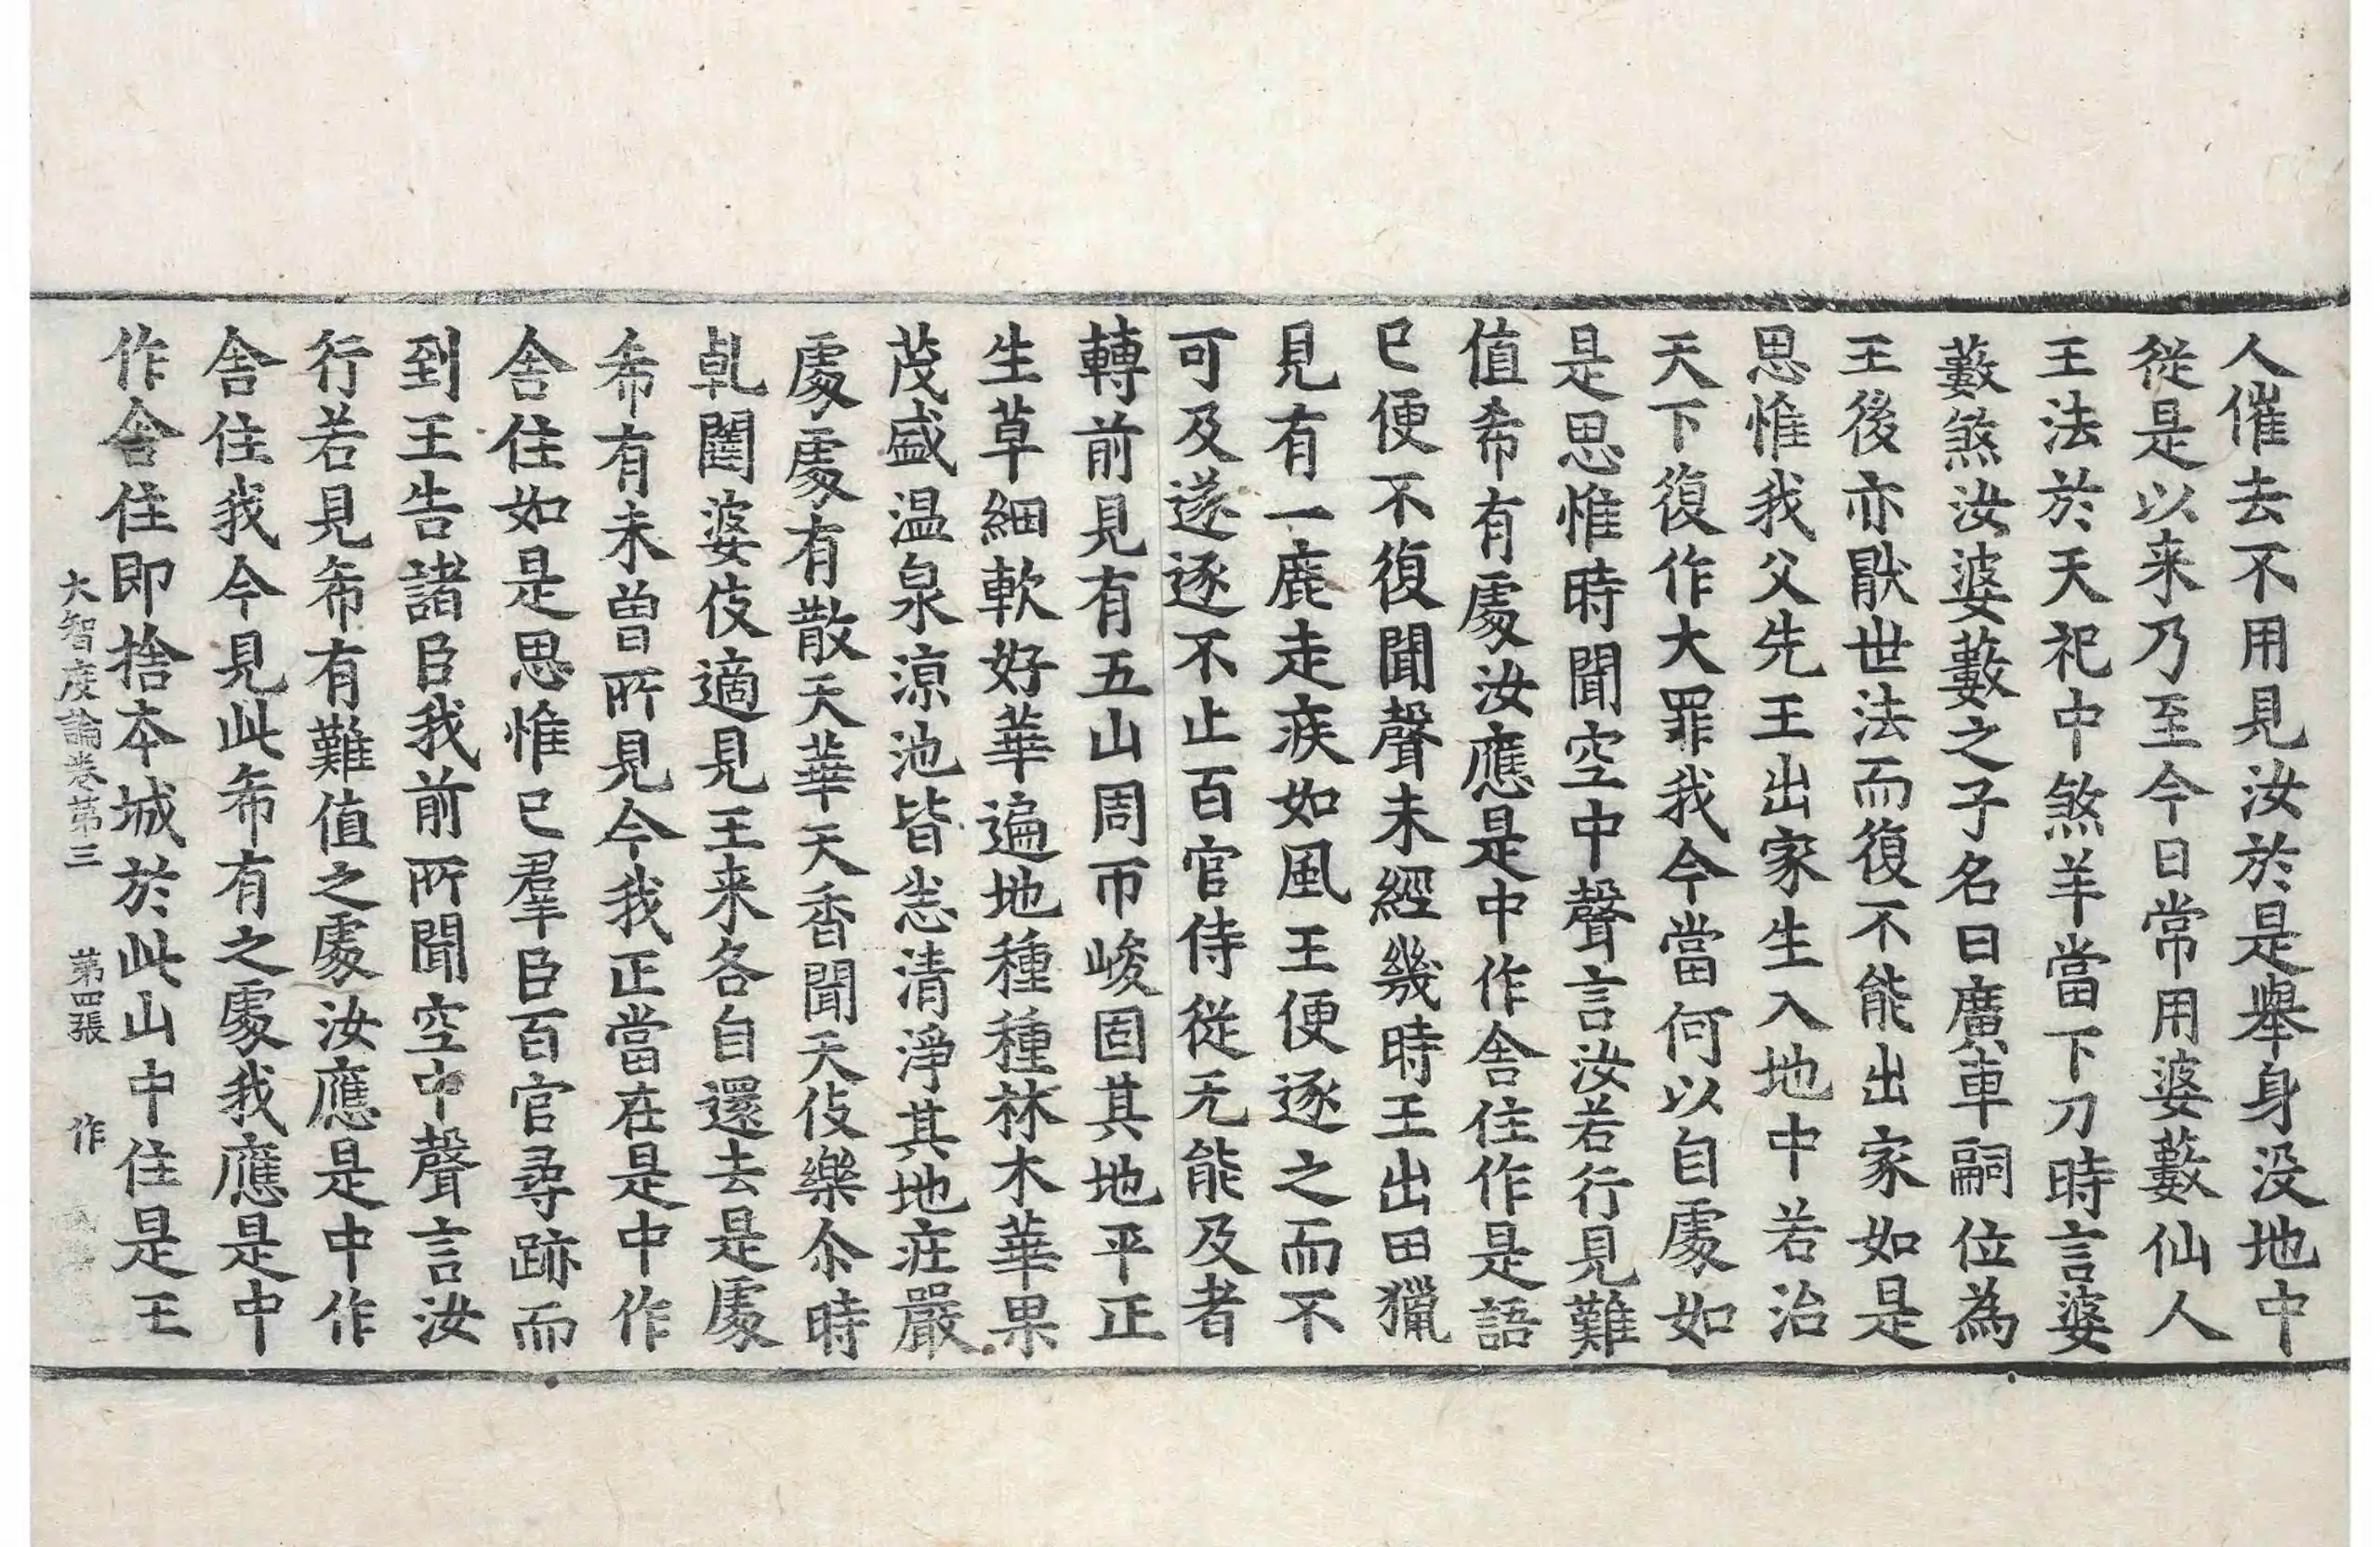 人催去不用見汝於是舉身没地中
從是以来乃至今日常用婆藪仙人
王法於天祀中煞羊當下刀時言婆
藪煞汝婆藪之子名曰廣車嗣位為
王後亦猒世法而復不能出家如是
思惟我父先王出家生入地中若治
天下復作大罪我今當何以自處如
是思惟時聞空中聲言汝若行見難
值希有處汝應是中作舎住作是語
已便不復聞聲未經幾時王出田獵
見有一鹿走疾如風王便逐之而不
可及遂逐不止百官侍從无能及者
轉前見有五山周帀峻固其地平正
生草細軟好華遍地種種林木華果
茂盛温泉涼池皆悉清淨其地庄嚴
處處有散天華天香聞天伎樂尒時
乹闥婆伎適見王来各自還去是處
希有未曾所見今我正當在是中作
舎住如是思惟已羣臣百官尋跡而
到王告諸臣我前所聞空中聲言汝
行若見希有難值之處汝應是中作
舎住我今見此希有之處我應是中
作舎住即捨本城於此山中住是王
大智度論卷第三 第四張 作